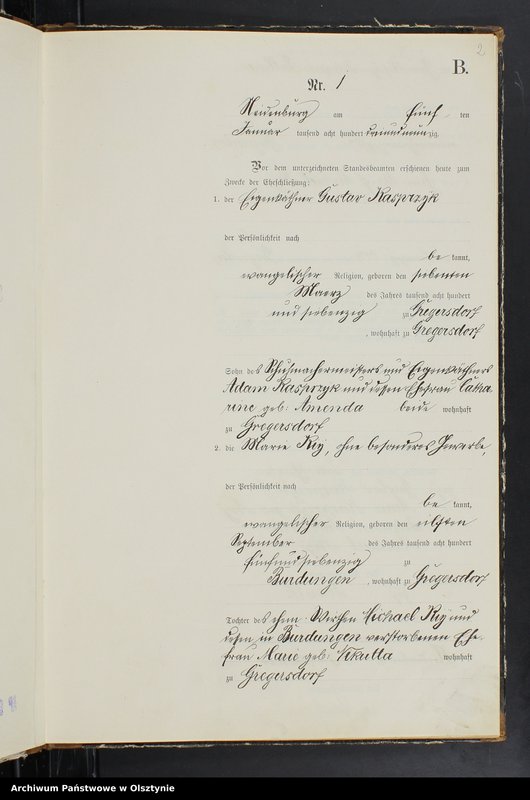 2
B.
Nr. 1
Neidenburg am fünf ten
Januar tausend acht hundert dreiundneunzig.
Vor dem unterzeichneten Standesbeamten erschienen heute zum
Zwecke der Eheschließung:
1. der Eigenkäthner Gustav Kasprzyk
der Persönlichkeit nach
be kannt,
evangelischer Religion, geboren den siebenten
Maerz des Jahres tausend acht hundert
und siebenzig zu Gregersdorf
, wohnhaft zu Gregersdorf
Sohn des Schuhmachermeisters und Eigenkäthners
Adam Kasprzyk und dessen Ehefrau Catha
rine geb: Amenda beide wohnhaft
zu Gregersdorf
2. die Marie Rey, ohne besonderes Gewerbe,
der Persönlichkeit nach
be kannt,
evangelischer Religion, geboren den elften
September des Jahres tausend acht hundert
fünfundsiebenzig zu
Burdungen, wohnhaft zu Gregersdorf
Tochter des ehem: Wirthen Michael Rey und
dessen in Burdungen verstorbenen Ehe-
frau Marie geb: wohnhaft
zu Gregersdorf
Archiwum Państwowe w Olsztynie